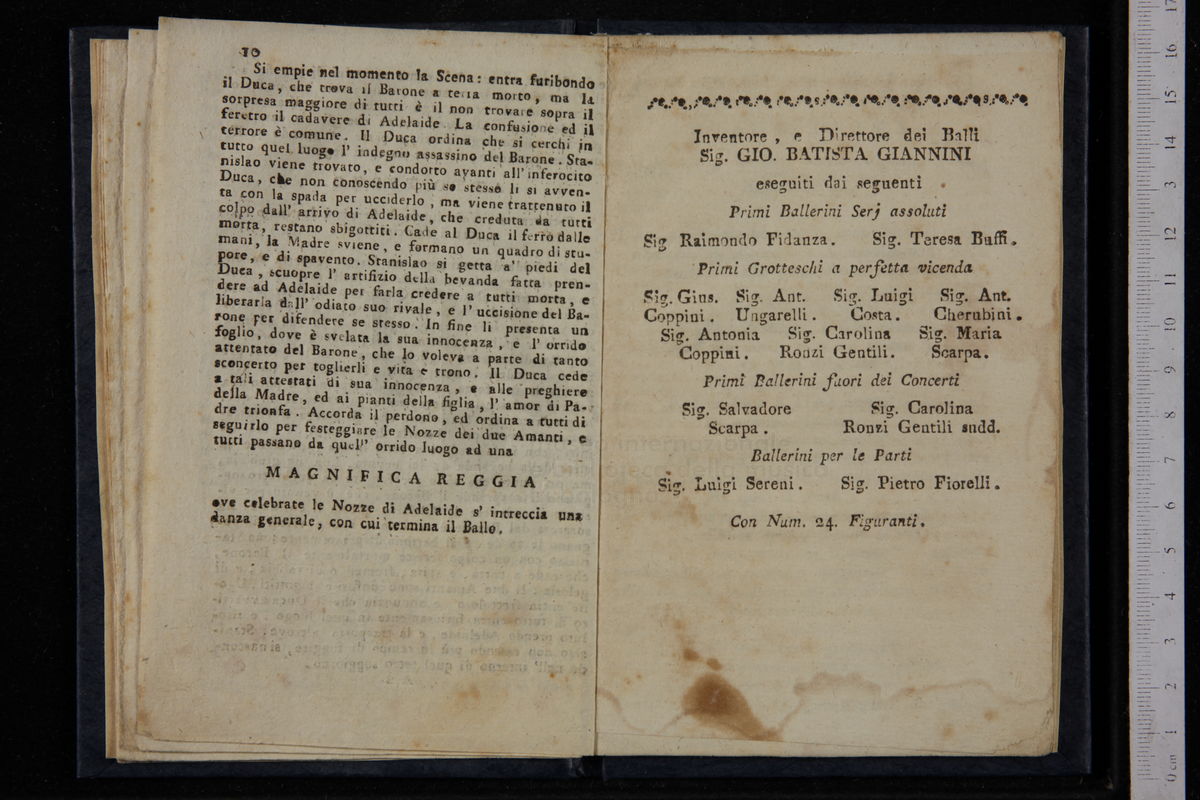 10
Si empie nel momento la Scena: entra furibondo
il Duca, che trova il Barone a terra morto, ma la
sorpresa maggiore di tutti è il non trovare sopra il
feretro il cadavere di Adelaide. La confusione ed il
terrore è comune. Il Duca ordina che si cerchi in
tutto quel luogo l' indegno assassino del Barone. Sta-
nislao viene trovato, e condotto avanti all' inferocito
Duca, che non conoscendo più se stesso li si avven-
ta con la spada per ucciderlo, ma viene trattenuto il
colpo dall' arrivo di Adelaide, che creduta da tutti
morta, restano sbigottiti. Cade al Duca il ferro dalle
mani, la Madre sviene, e formano un quadro di stu-
pore, e di spavento. Stanislao si getta a' piedi del
Duca, scuopre l' artifizio della bevanda fatta pren-
dere ad Adelaide per farla credere a tutti morta, e
liberarla dall' odiato suo rivale, e l' uccisione del Ba-
rone per difendere se stesso. In fine li presenta un
foglio, dove è svelata la sua innocenza, e l' orrido
attentato del Barone, che lo voleva a parte di tanto
sconcerto per toglierli e vita e trono. Il Duca cede
a tali attestati di sua innocenza, e alle preghiere
della Madre, ed ai pianti della figlia, l' amor di Pa-
dre trionfa. Accorda il perdono, ed ordina a tutti di
seguirlo per festeggiare le Nozze dei due Amanti, e
tutti passano da quell' orrido luogo ad una
MAGNIFICA REGGIA
ove celebrate le Nozze di Adelaide s' intreccia una
danza generale, con cui termina il Ballo.
Inventore, e Direttore dei Balli
Sig. GIO. BATISTA GIANNINI
eseguiti dai seguenti
Primi Ballerini Serj assoluti
Sig Raimondo Fidanza. Sig. Teresa Buffi.
Primi Grotteschi a perfetta vicenda
Sig. Gius. Sig. Ant. Sig. Luigi Sig. Ant.
Coppini. Ungarelli. Costa. Cherubini.
Sig. Antonia Sig. Carolina Sig. Maria
Coppini. Ronzi Gentili. Scarpa.
Primi Ballerini fuori dei Concerti
Sig. Salvadore Sig. Carolina
Scarpa. Ronzi Gentili sudd.
Ballerini per le Parti
Sig. Luigi Sereni. Sig. Pietro Fiorelli.
Con Num. 24. Figuranti.